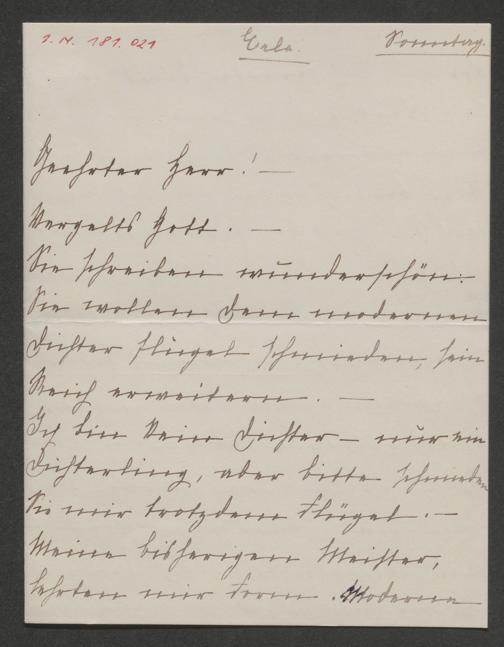 I.N. 181.021
Sonntag.
Geehrter Herr! —
Vergelts Gott. —
Sie schreiben wunderschön:
Sie wollen dem modernen
Dichter Flügel schmieden, sein
Reich erweitern. —
Ich bin kein Dichter — nur ein
Dichterling, aber bitte schmieden
Sie mir trotzdem Flügel. —
Meine bisherigen Meister,
lehrten mir Form. Moderne